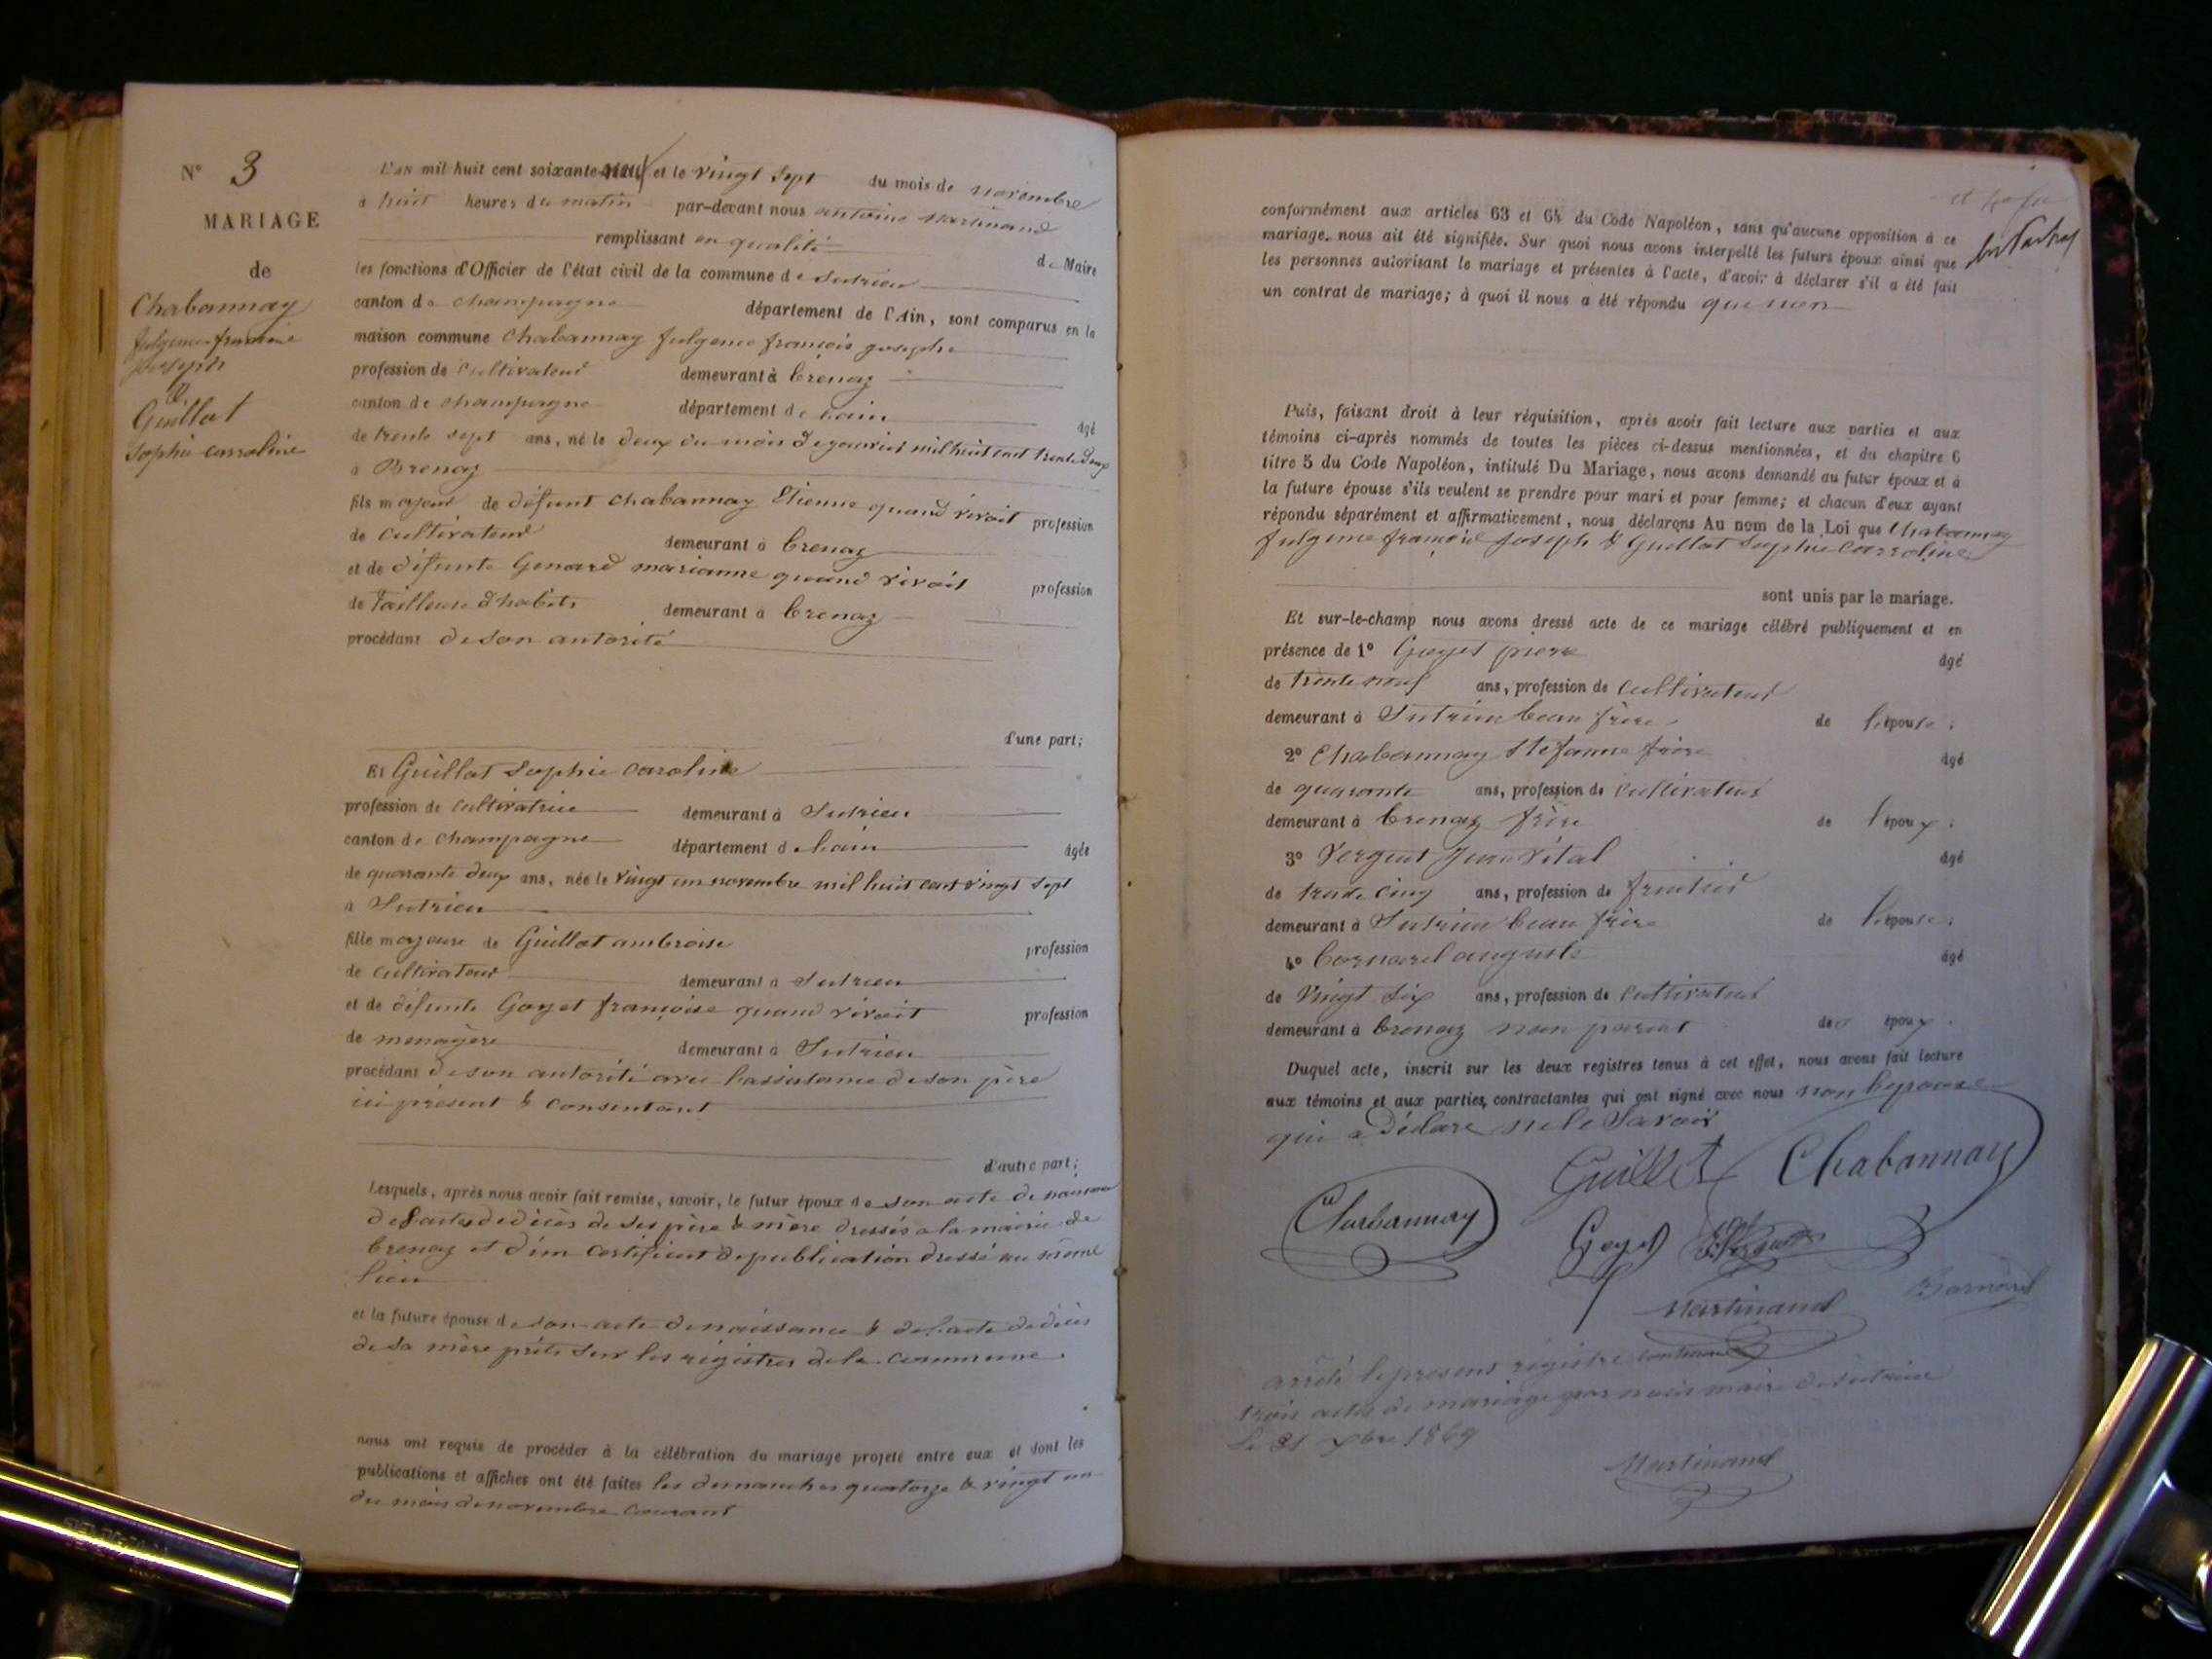 N° 3
MARIAGE
de
Chabannay
fulgence françois
joseph
&
Guillot
Sophie carroline
L'AN mil huit cent soixante-neuf et le vingt sept du mois de novembre
à huit heures du matin par-devant nous antoine Martinand
remplissant en qualité de Maire
les fonctions d'Officier de l'état civil de la commune de Sutrieu
canton de champagne département de l'Ain, sont comparus en la
maison commune Chabannay fulgence françois josephe
profession de Cultivateur demeurant à brenaz
canton de champagne département de lain âgé
de trente sept ans, né le deux du mois de janvier mil huit cent trente deux
à Brenaz
fils majeur de défunt chabannay Etienne quand vivait profession
de cultivateur demeurant à brenaz
et de défunte Genard marianne quand vivait profession
de Tailleuse d'habits demeurant à brenaz
procédant de son autorité
d'une part;
Et Guillot Sophie caroline
profession de cultivatrice demeurant à Sutrieu
canton de champagne département de lain âgée
de quarante deux ans, née le vingt un novembre mil huit cent vingt sept
à Sutrieu
fille majeure de Guillot ambroise profession
de cultivateur demeurant à Sutrieu
et de défunte Goyet françoise quand vivait profession
de menagère demeurant à Sutrieu
procédant de son autorité avec l'assistance de son père
ici présent & consentant
d'autre part;
Lesquels, après nous avoir fait remise, savoir, le futur époux de son acte de naissance
des actes de décès de ses père & mère dressés a la mairie de
brenaz et d'un certificat de publication dressé au même
lieu
et la future épouse de son acte de naissance & de l'acte de décès
de sa mère prits sur les régistres de la commune.
nous ont requis de procéder à la célébration du mariage projeté entre eux et dont les
publications et affiches ont été faites les dimanches quatorze & vingt un
du mois de novembre courant
conformément aux articles 63 et 64 du Code Napoléon, sans qu'aucune opposition à ce
mariage nous ait été signifiée. Sur quoi nous avons interpellé les futurs époux ainsi que
les personnes autorisant le mariage et présentes à l'acte, d'avoir à déclarer s'il a été fait
un contrat de mariage; à quoi il nous a été répondu que non
Puis, faisant droit à leur réquisition, après avoir fait lecture aux parties et aux
témoins ci-après nommés de toutes les pièces ci-dessus mentionnées, et du chapitre 6
titre 5 du Code Napoléon, intitulé Du Mariage, nous avons demandé au futur époux et à
la future épouse s'ils veulent se prendre pour mari et pour femme; et chacun d'eux ayant
répondu séparément et affirmativement, nous déclarons Au nom de la Loi que Chabannay
fulgence françois joseph & Guillot Sophie Carroline
sont unis par le mariage.
Et sur-le-champ nous avons dressé acte de ce mariage célébré publiquement et en
présence de 1° Goyet pierre âgé
de trente neuf ans, profession de cultivateur
demeurant à Sutrieu beau frère de l'épouse;
2° Chabannay Stefanne frère âgé
de quarante ans, profession de cultivateur
demeurant à brenaz frère de l'époux;
3° Vergunt jean vital âgé
de trente cinq ans, profession de fruitier
demeurant à Sutrieu beau frère de l'épouse;
4° bornarel auguste âgé
de vingt six ans, profession de cultivateur
demeurant à brenaz non parent des époux.
Duquel acte, inscrit sur les deux registres tenus à cet effet, nous avons fait lecture
aux témoins et aux parties contractantes qui ont signé avec nous non l'épouse
qui a Déclare ne le Savoir
Guillot Chabannay
Chabannay
Goyet
Martinand
arrêté le present registre contenant
trois actes de mariage par nous maire de Sutrieu
le 31 xbre 1869
Martinand